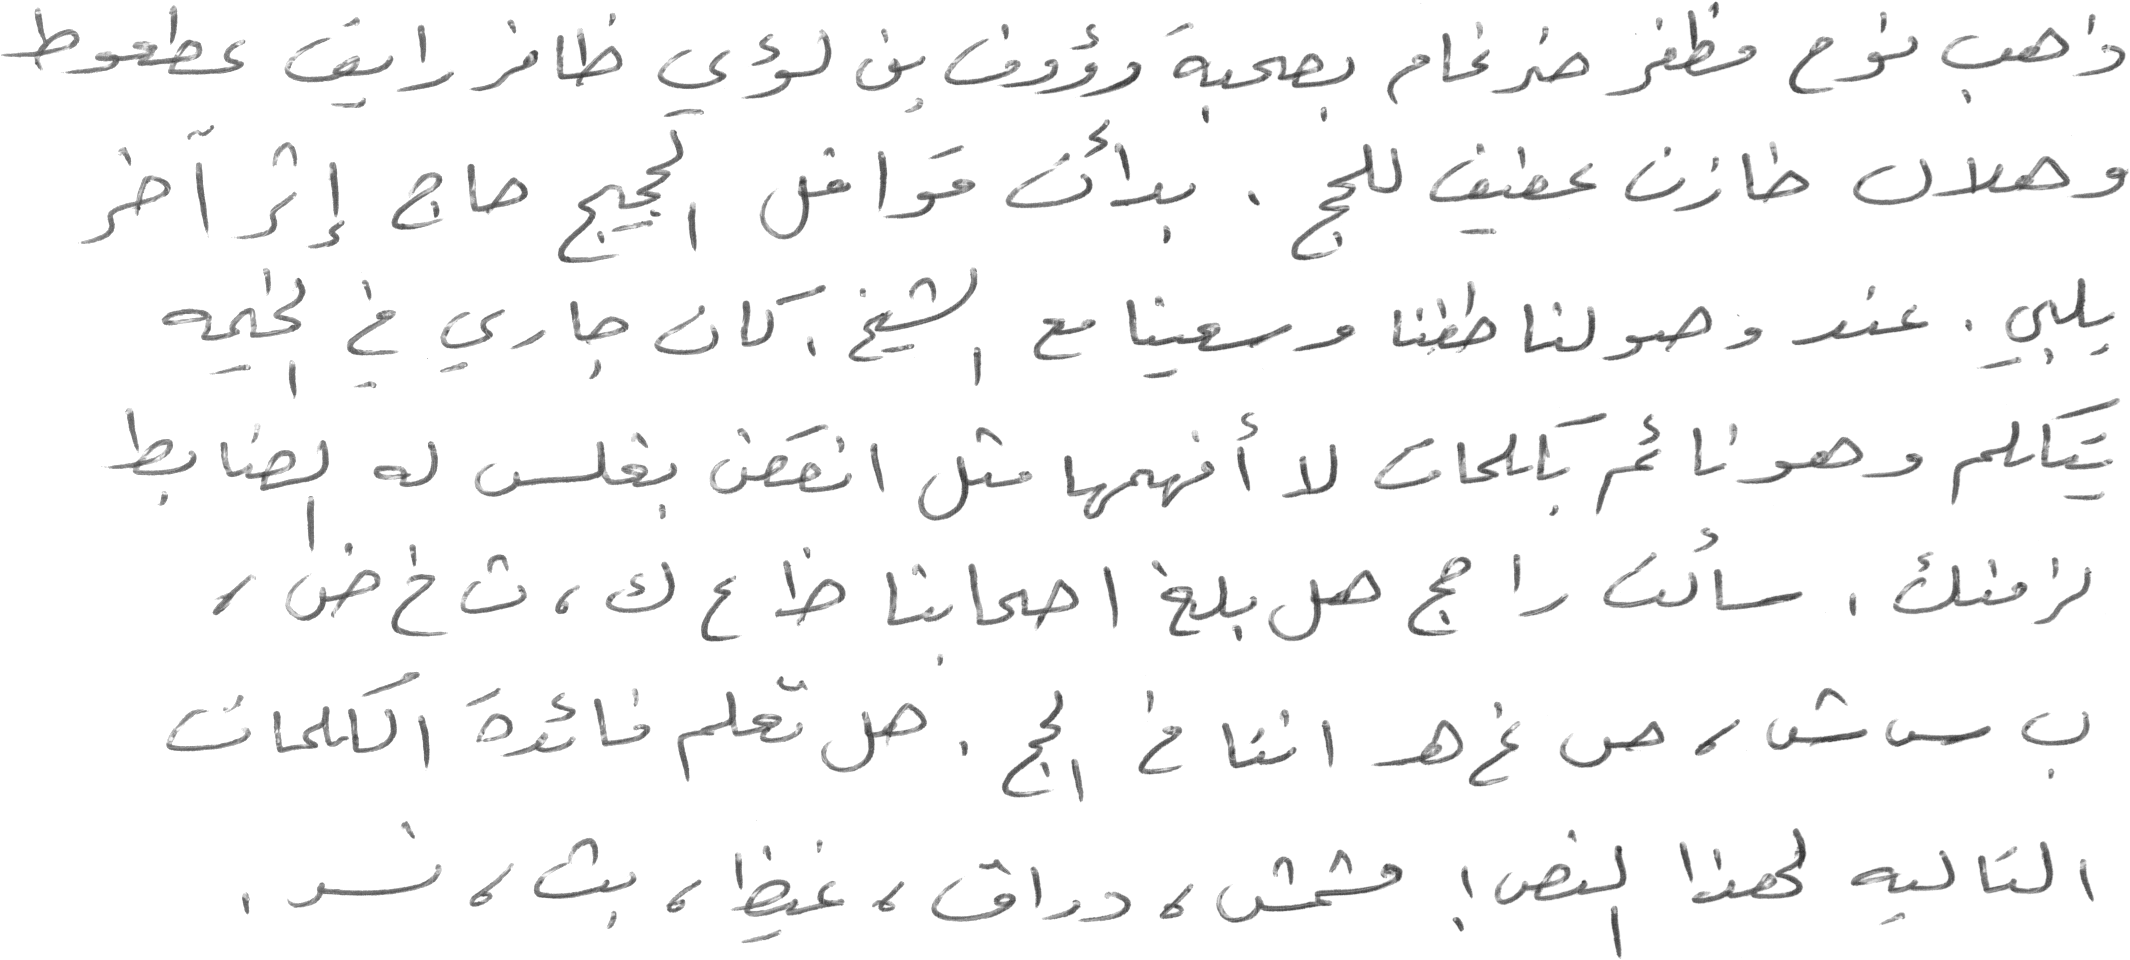 ذاهب نوح مظفر ضرغام بصحبة رؤوف بن لؤي ظافر رايق عطعوط
وهلال خازن عفيف للحج . بدأت قوافل الحجيج حاج إثر آخر
يلبي . عند وصولنا طفنا وسعينا مع الشيخ . كان جاري في الخيمه
يتكلم وهو نائم بكلمات لا أفهمها مثل انقض بغلس له الضابط
لزمنك . سألت راجح هل بلغ اصحابنا ظ ع ك ، ث خ ض ،
ب س ش ، ص غ هـ اننا في الحج . هل تعلم فائدة الكلمات
التاليه لهذا النص ! مشمش ، دراق ، غيظ ، بث ، نسر .